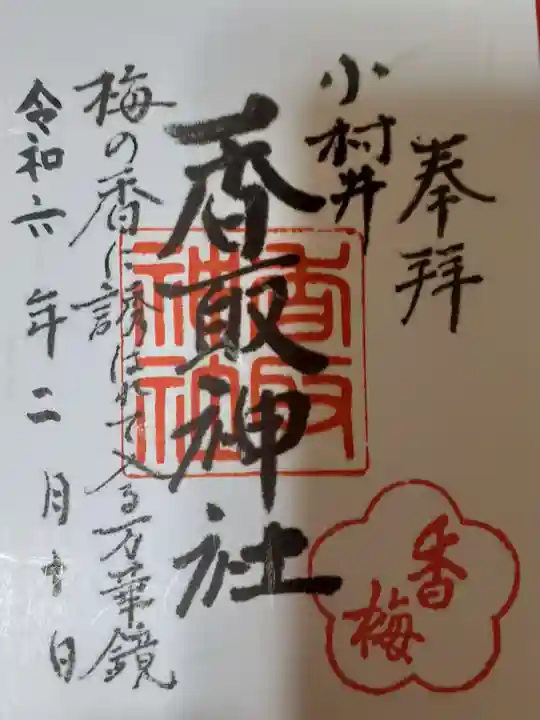 奉拝
小村井
香取神社
梅の香に誘はれて入る万華鏡
令和六年二月十日
香取
神社
香梅